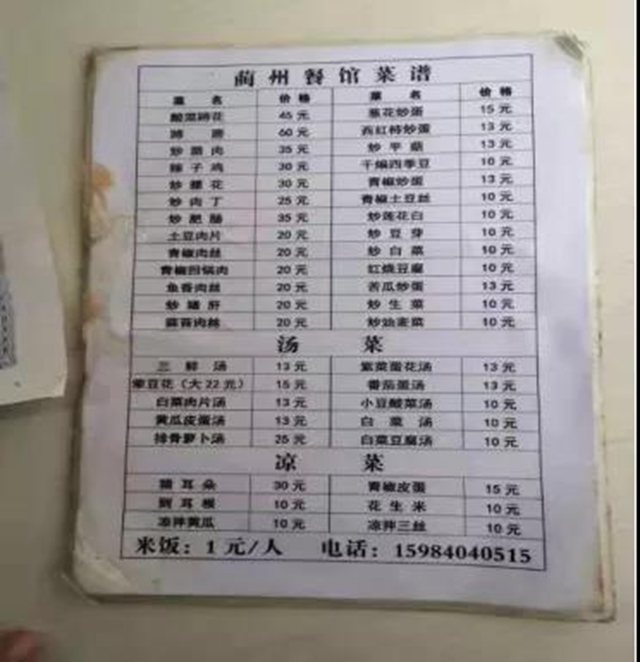 蔺州餐馆菜谱
菜名 价格 菜名 价格
45元 葱花炒蛋 15元
60元 西红柿炒蛋 13元
35元 炒平菇 13元
辣子鸡 30元 干煸四季豆 10元
炒腰花 30元 青椒炒蛋 13元
炒肉丁 25元 青椒土豆丝 10元
炒肥肠 35元 炒莲花白 10元
土豆肉片 20元 炒豆芽 10元
青椒肉丝 20元 炒白菜 10元
青椒回锅肉 20元 红烧豆腐 10元
鱼香肉丝 20元 苦瓜炒蛋 13元
炒猪肝 20元 炒生菜 10元
蒜苔肉丝 20元 炒油麦菜 10元
汤菜
三鲜汤 13元 紫菜蛋花汤 13元
荤豆花（大22元） 15元 番茄蛋汤 13元
白菜肉片汤 13元 小豆酸菜汤 10元
黄瓜皮蛋汤 13元 白菜汤 10元
排骨萝卜汤 25元 白菜豆腐汤 10元
凉菜
猪耳朵 30元 青椒皮蛋 15元
耳根 10元 花生米 10元
凉拌黄瓜 10元 凉拌三丝 10元
米饭：1元/人 电话：15984040515